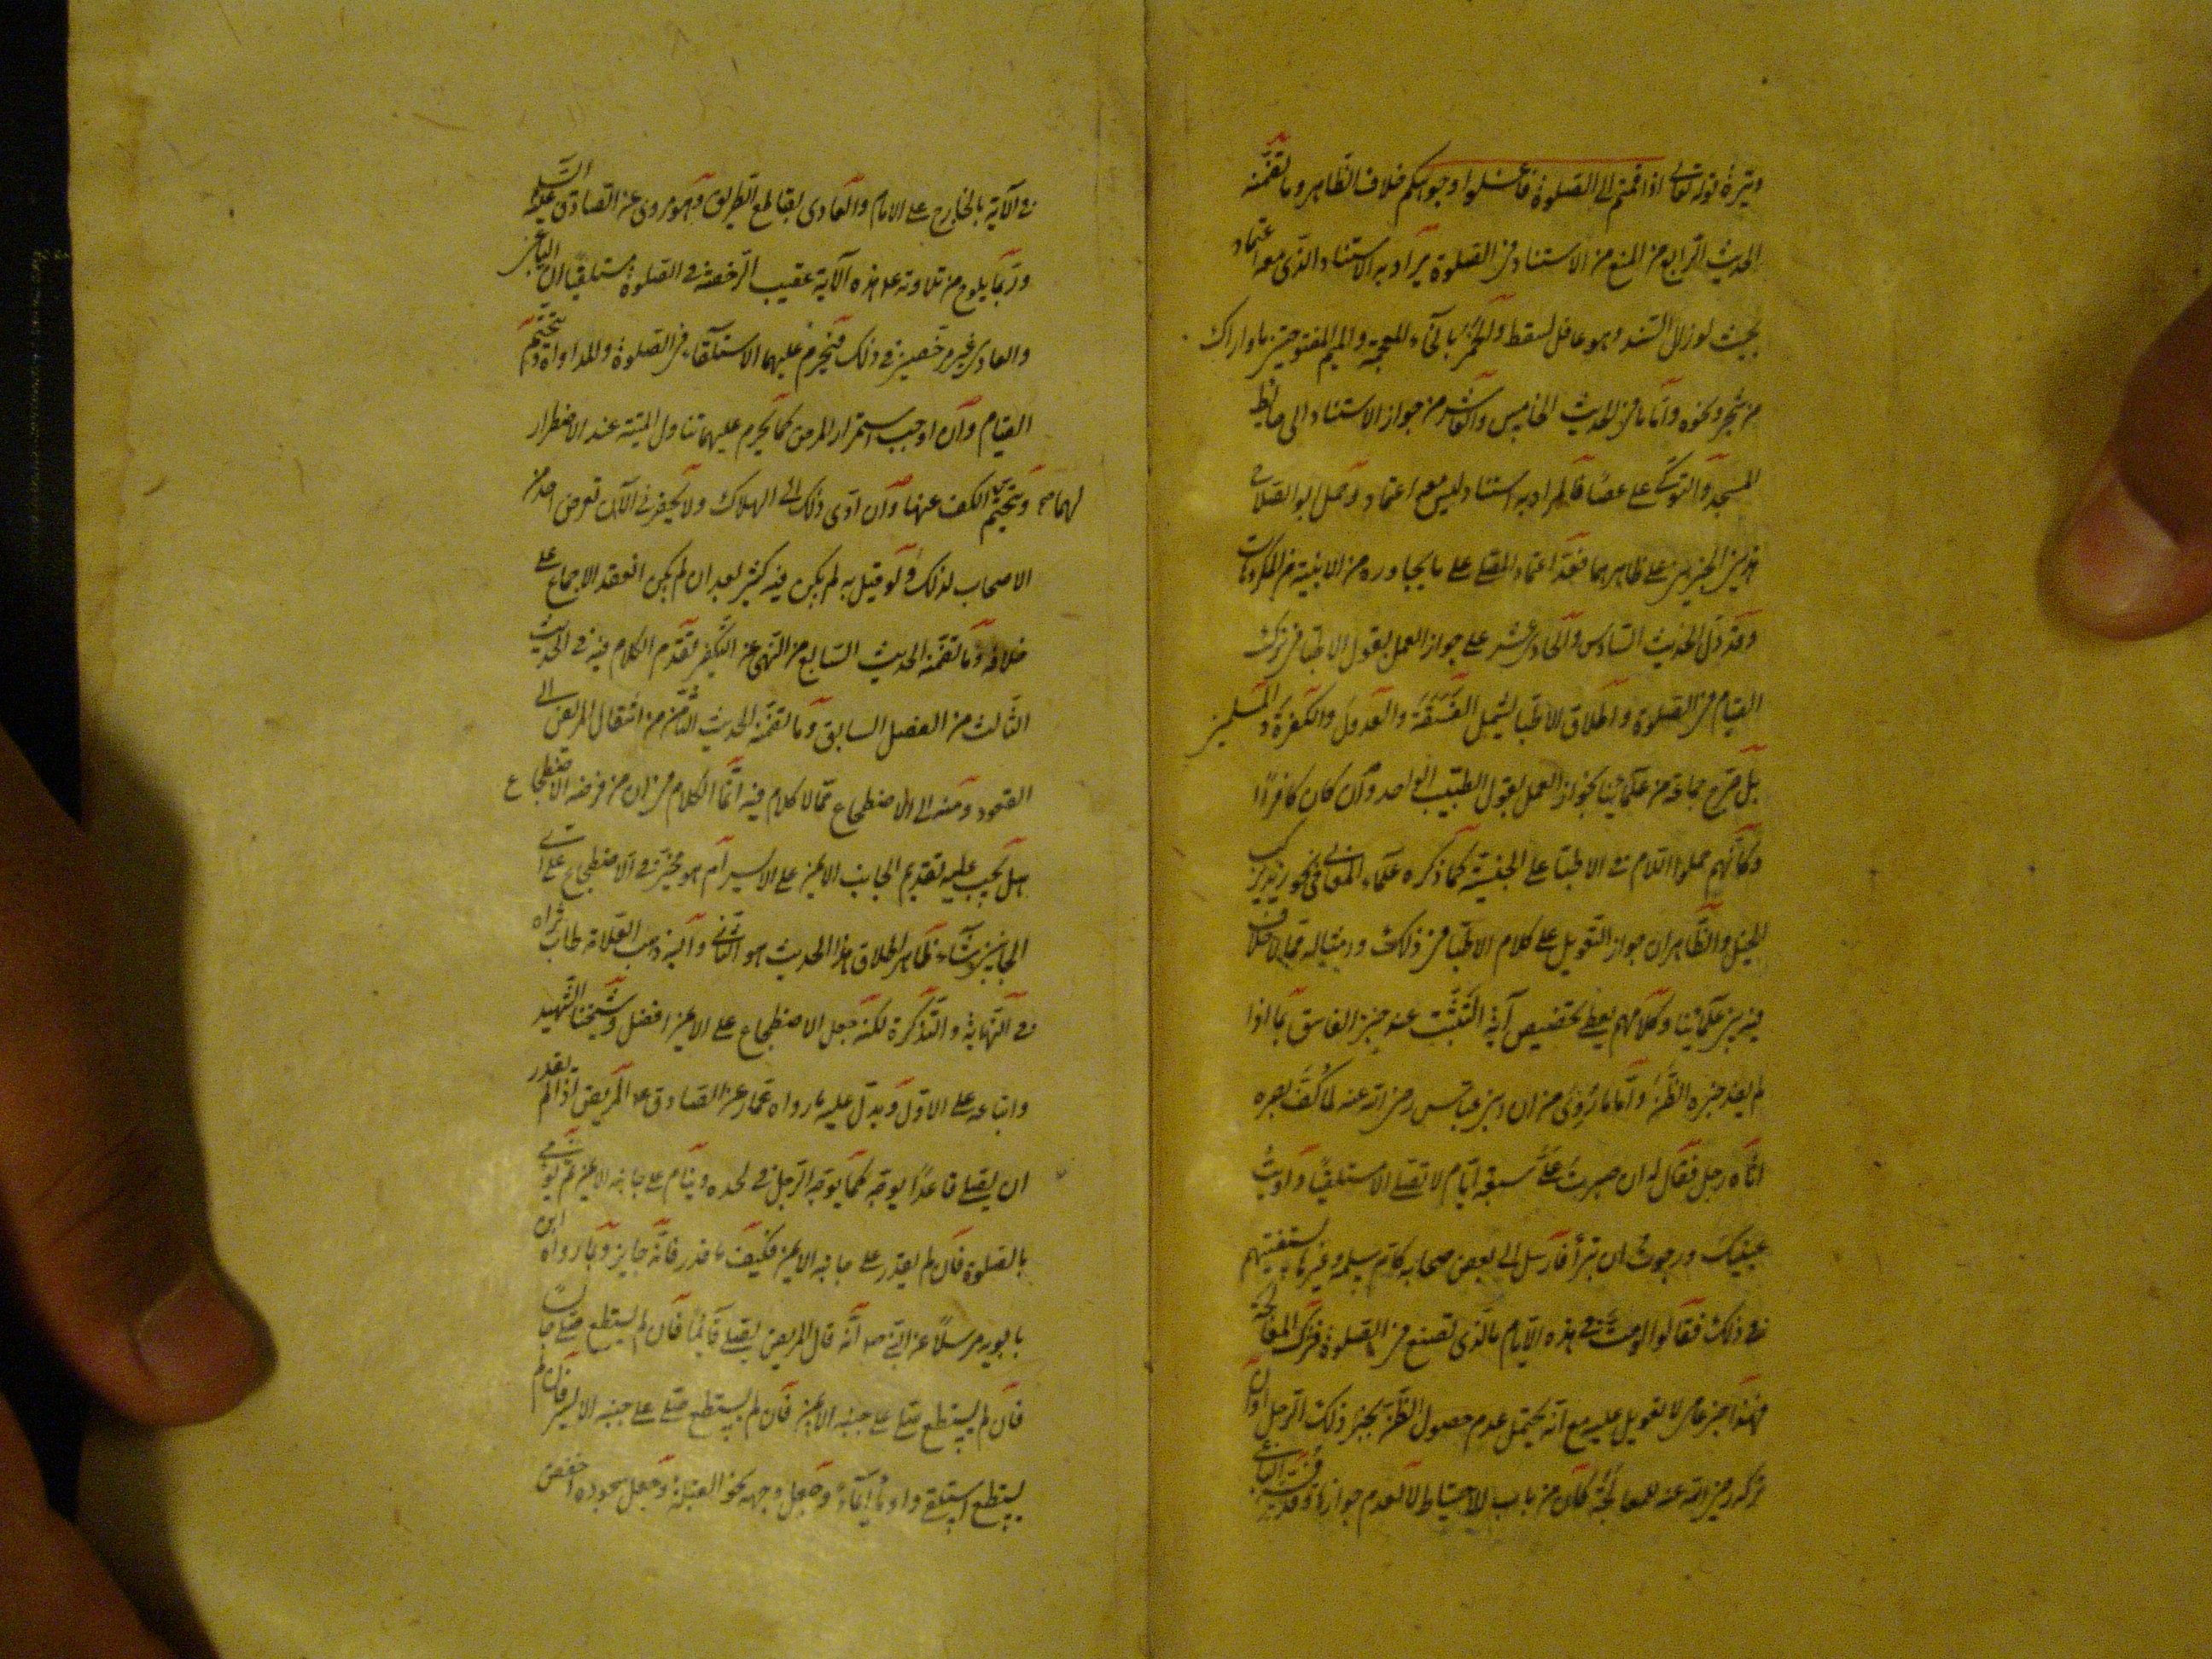 وتيرة قوله تعالى اذا قمتم الى الصلوة فاغسلوا وجوهكم خلاف الظاهر وما تضمنه
الحديث الرابع من المنع من الاستناد في الصلوة يراد به الاستناد الذي معه اعتماد
بحيث لو زال السند وهو عاقل لسقط والخمر بالخاء المعجمة والميم المفتوحتين ما واراك
من شجر ونحوه واما ما في الحديث الخامس والعاشر من جواز الاستناد الى حائط
المسجد والتوكي على عصا فالمراد به استناد ليس معه اعتماد وحمل ابو الصلاح
هذين الخبرين على ظاهرهما فعد اعتماد المصلي على ما يجاوره من الابنية في المكروهات
وقد دل الحديث السادس والحادي عشر على جواز العمل بقول الاطبا في ترك
القيام في الصلوة واطلاق الاطبا يشمل الفسقة والعدول والكفرة والمسلمين
بل صرح جماعة من علمائنا بجواز العمل بقول الطبيب الواحد وان كان كافرا
وكانهم حملوا اللام في الاطبا على الجنسية كما ذكره علماء المعاني في نحو زيد يركب
الخيل والظاهر ان جواز التعويل على كلام الاطبا في ذلك وامثاله مما لا خلاف
فيه بين علمائنا وكلامهم يعطي تخصيص آية التثبت عند خبر الفاسق بما اذا
لم يفد خبره الظن واما ما روي من ان ابن عباس رضي الله عنه لما كف بصره
اتاه رجل فقال له ان صبرت على سبعة ايام لا تصلي الا مستلقيا داويت
عينيك ورجوت ان تبرأ فارسل الى بعض الصحابة كام سلمة وغيرها يستفتيهم
في ذلك فقالوا لو مت في هذه الايام ما الذي تصنع في الصلوة فترك المعالجة
فهذا خبر عامي لا تعويل عليه مع انه يحتمل عدم حصول الظن بخبر ذلك الرجل او ان
تركه رضي الله عنه للمعالجة كان من باب الاحتياط لا لعدم جوازها وقد فسر الباغي
في الآية بالخارج على الامام والعادي بقاطع الطريق وهو مروي عن الصادق عليه السلام
وربما يلوح من تلاوته ع هذه الآية عقيب الرخصة في الصلوة مستلقيا ان الباغي
والعادي غير مرخصين في ذلك فيحرم عليهما الاستلقاء في الصلوة والمداواة ويتحتم
القيام وان اوجب استمرار المرض كما يحرم عليهما تناول الميتة عند الاضطرار
لهما ويتحتم الكف عنها وان ادى ذلك الى الهلاك ولا يحضرني الآن تعرض احد من
الاصحاب لذلك ولو قيل به لم يكن فيه كثير بعد ان لم يكن انعقد الاجماع على
خلافه وما تضمنه الحديث السابع من النهي عن التكفير تقدم الكلام فيه في الحديث
الثالث من الفصل السابق وما تضمنه الحديث الثامن من انتقال المريض الى
القعود ومنه الى الاضطجاع مما لا كلام فيه انما الكلام في ان من فرضه الاضطجاع
هل يجب عليه تقديم الجانب الايمن على الايسر ام هو مخير في الاضطجاع على اي
الجانبين شاء ظاهر اطلاق هذا الحديث هو الثاني واليه ذهب العلامة طاب ثراه
في النهاية والتذكرة لكنه جعل الاضطجاع على الايمن افضل وشيخنا الشهيد
واتباعه على الاول ويدل عليه ما رواه عمار عن الصادق ع المريض اذا لم يقدر
ان يصلي قاعدا يوجه كما يوجه الرجل في لحده وينام على جانبه الايمن ثم يومي
بالصلوة فان لم يقدر على جانبه الايمن فكيف ما قدر فانه جايز وما رواه ابن
بابويه مرسلا عن النبي ص انه قال المريض يصلي قائما فان لم يستطع صلى جالسا
فان لم يستطع صلى على جنبه الايمن فان لم يستطع صلى على جنبه الايسر فان لم
يستطع استلقى واومأ ايماء وجعل وجهه نحو القبلة وجعل سجوده اخفض